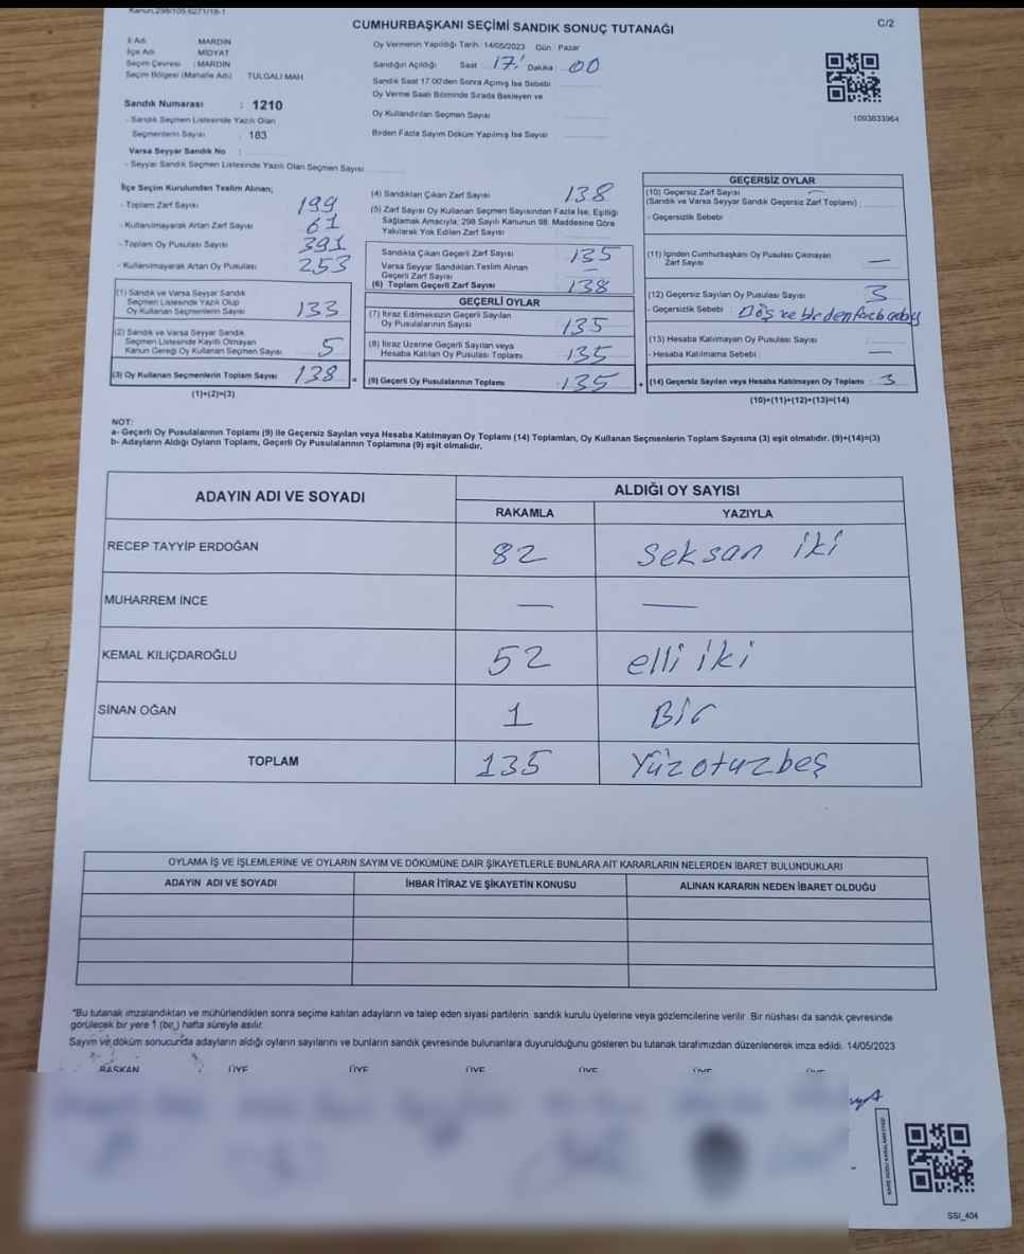 Kanun,298/105.6271/18-1
CUMHURBAŞKANI SEÇİMİ SANDIK SONUÇ TUTANAĞI
C/2
İl Adı : MARDİN
İlçe Adı : MİDYAT
Seçim Çevresi : MARDİN
Seçim Bölgesi (Mahalle Adı) : TULGALI MAH
Oy Vermenin Yapıldığı Tarih: 14/05/2023 Gün : Pazar
Sandığın Açıldığı Saat : 17 Dakika : 00
Sandık Saat 17:00'den Sonra Açılmış İse Sebebi
Oy Verme Saati Bitiminde Sırada Bekleyen ve
Oy Kullandırılan Seçmen Sayısı
Birden Fazla Sayım Döküm Yapılmış İse Sayısı
1093833964
Sandık Numarası : 1210
- Sandık Seçmen Listesinde Yazılı Olan
Seçmenlerin Sayısı : 183
Varsa Seyyar Sandık No :
- Seyyar Sandık Seçmen Listesinde Yazılı Olan Seçmen Sayısı
İlçe Seçim Kurulundan Teslim Alınan;
- Toplam Zarf Sayısı : 199
- Kullanılmayarak Artan Zarf Sayısı : 61
- Toplam Oy Pusulası Sayısı : 391
- Kullanılmayarak Artan Oy Pusulası : 253
(1) Sandık ve Varsa Seyyar Sandık
Seçmen Listesinde Yazılı Olup
Oy Kullanan Seçmen Sayısı : 133
(2) Sandık ve Varsa Seyyar Sandık
Seçmen Listesinde Kayıtlı Olmayan
Kanun Gereği Oy Kullanan Seçmen Sayısı : 5
(3) Oy Kullanan Seçmenlerin Toplam Sayısı : 138
(1)+(2)=(3)
(4) Sandıktan Çıkan Zarf Sayısı : 138
(5) Zarf Sayısı Oy Kullanan Seçmen Sayısından Fazla İse, Eşitliği
Sağlamak Amacıyla; 298 Sayılı Kanunun 98. Maddesine Göre
Yakılarak Yok Edilen Zarf Sayısı
Sandıkta Çıkan Geçerli Zarf Sayısı : 135
Varsa Seyyar Sandıktan Teslim Alınan
Geçerli Zarf Sayısı : —
(6) Toplam Geçerli Zarf Sayısı : 138
GEÇERLİ OYLAR
(7) İtiraz Edilmeksizin Geçerli Sayılan
Oy Pusulalarının Sayısı : 135
(8) İtiraz Üzerine Geçerli Sayılan veya
Hesaba Katılan Oy Pusulası Toplamı : 135
= (9) Geçerli Oy Pusulalarının Toplamı : 135
GEÇERSİZ OYLAR
(10) Geçersiz Zarf Sayısı —
(Sandık ve Varsa Seyyar Sandık Geçersiz Zarf Toplamı)
- Geçersizlik Sebebi
(11) İçinden Cumhurbaşkanı Oy Pusulası Çıkmayan
Zarf Sayısı —
(12) Geçersiz Sayılan Oy Pusulası Sayısı : 3
- Geçersizlik Sebebi :
(13) Hesaba Katılmayan Oy Pusulası Sayısı :
- Hesaba Katılmama Sebebi : —
+ (14) Geçersiz Sayılan veya Hesaba Katılmayan Oy Toplamı : 3
(10)+(11)+(12)+(13)=(14)
NOT:
a- Geçerli Oy Pusulalarının Toplamı (9) ile Geçersiz Sayılan veya Hesaba Katılmayan Oy Toplamı (14) Toplamları, Oy Kullanan Seçmenlerin Toplam Sayısına (3) eşit olmalıdır. (9)+(14)=(3)
b- Adayların Aldığı Oyların Toplamı, Geçerli Oy Pusulalarının Toplamına (9) eşit olmalıdır.
ADAYIN ADI VE SOYADI
ALDIĞI OY SAYISI
RAKAMLA YAZIYLA
RECEP TAYYİP ERDOĞAN 82 Seksan iki
MUHARREM İNCE — —
KEMAL KILIÇDAROĞLU 52 elli iki
SİNAN OĞAN 1 Bir
TOPLAM 135 Yüzotuzbeş
OYLAMA İŞ VE İŞLEMLERİNE VE OYLARIN SAYIM VE DÖKÜMÜNE DAİR ŞİKAYETLERLE BUNLARA AİT KARARLARIN NELERDEN İBARET BULUNDUKLARI
ADAYIN ADI VE SOYADI İHBAR İTİRAZ VE ŞİKAYETİN KONUSU ALINAN KARARIN NEDEN İBARET OLDUĞU
*Bu tutanak imzalandıktan ve mühürlendikten sonra seçime katılan adayların ve talep eden siyasi partilerin sandık kurulu üyelerine veya gözlemcilerine verilir. Bir nüshası da sandık çevresinde
görülecek bir yere 1 (bir) hafta süreyle asılır.
Sayım ve döküm sonucunda adayların aldığı oyların sayılarını ve bunların sandık çevresinde bulunanlara duyurulduğunu gösteren bu tutanak tarafımızdan düzenlenerek imza edildi. 14/05/2023
BAŞKAN ÜYE ÜYE ÜYE ÜYE ÜYE ÜYE
SSI_404